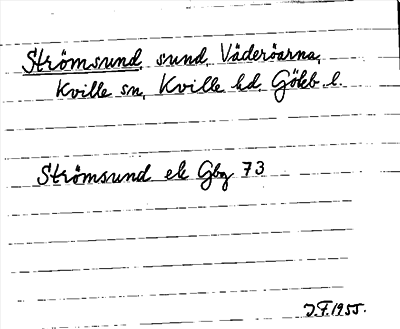 Strömsund, sund, Väderöarna,
Kville sn, Kville hd, Göteb. l.
Strömsund ek Gbg 73
J.F. 1955.